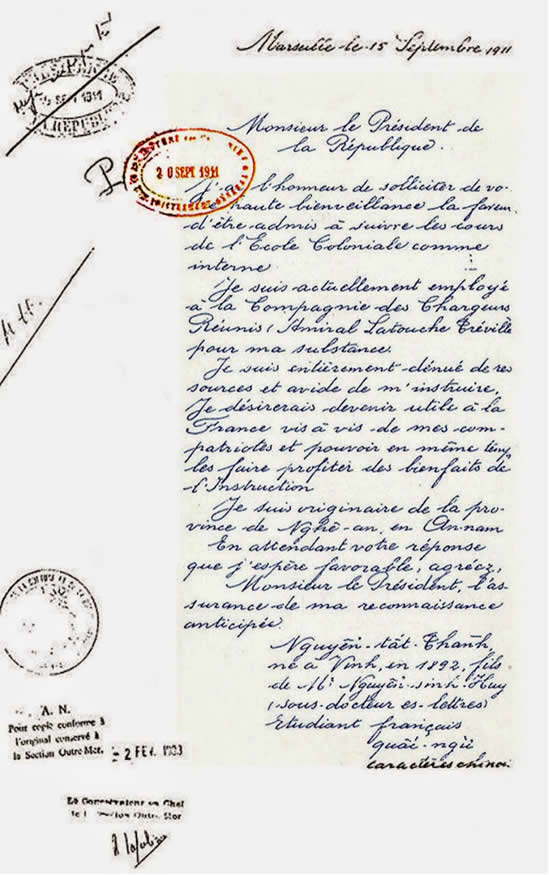 Marseille le 15 Septembre 1911
SEPT 1911
Monsieur le Président de
la République.
20 SEPT 1911
l'honneur de solliciter de vo-
haute bienveillance la faveur
d'être admis à suivre les cours
de l'École Coloniale comme
interne
Je suis actuellement employé
à la Compagnie des Chargeurs
Réunis, Amiral Latouche Tréville
pour ma substance.
Je suis entièrement dénué de res
sources et avide de m'instruire.
Je désirerais devenir utile à la
France vis à vis de mes com-
patriotes et pouvoir en même temps
les faire profiter des bienfaits de
l'Instruction
Je suis originaire de la pro-
vince de Nghê-an, en An-nam
En attendant votre réponse
que j'espère favorable, agréez,
Monsieur le Président, l'as-
surance de ma reconnaissance
anticipée.
Nguyễn-tất-Thành,
né à Vinh, en 1892, fils
de Mr Nguyễn-sinh-Huy
(sous-docteur ès-lettres)
Etudiant français
quốc-ngữ
caractères chinois
A. N.
Pour copie conforme à
l'original conservé à
la Section Outre-Mer.
- 2 FEV. 1983
Le Conservateur en Chef
de la Section Outre-Mer